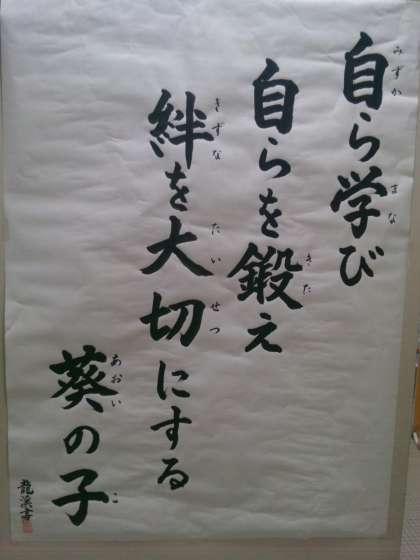 自ら学び
みずか
まな
自らを鍛え
きた
絆を大切にする
きずな
たいせつ
葵の子
あおい
こ
龍溪書